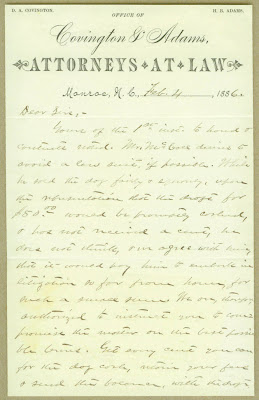 D. A. COVINGTON.
OFFICE OF
H. B. ADAMS.
Covington & Adams,
ATTORNEYS AT LAW
Monroe, N. C., Feb. 4 1886.
Dear Sirs,-
Yours of the 1st inst. to hand &
contents noted. Mr. desires to
avoid a law suit, if possible. While
he sold the dog fairly & squarely, upon
the representation that the draft for
$50.00 would be promptly cashed,
& has not received a cent, he
does not think, our agree with him,
that it would pay him to
litigation so far from home, for
such a small sum. We are, therefore,
authorized to instruct you to com
promise the matter on the best possi
ble terms. Get every cent you can
for the dog, retain your fees
& send the balance, with the draft